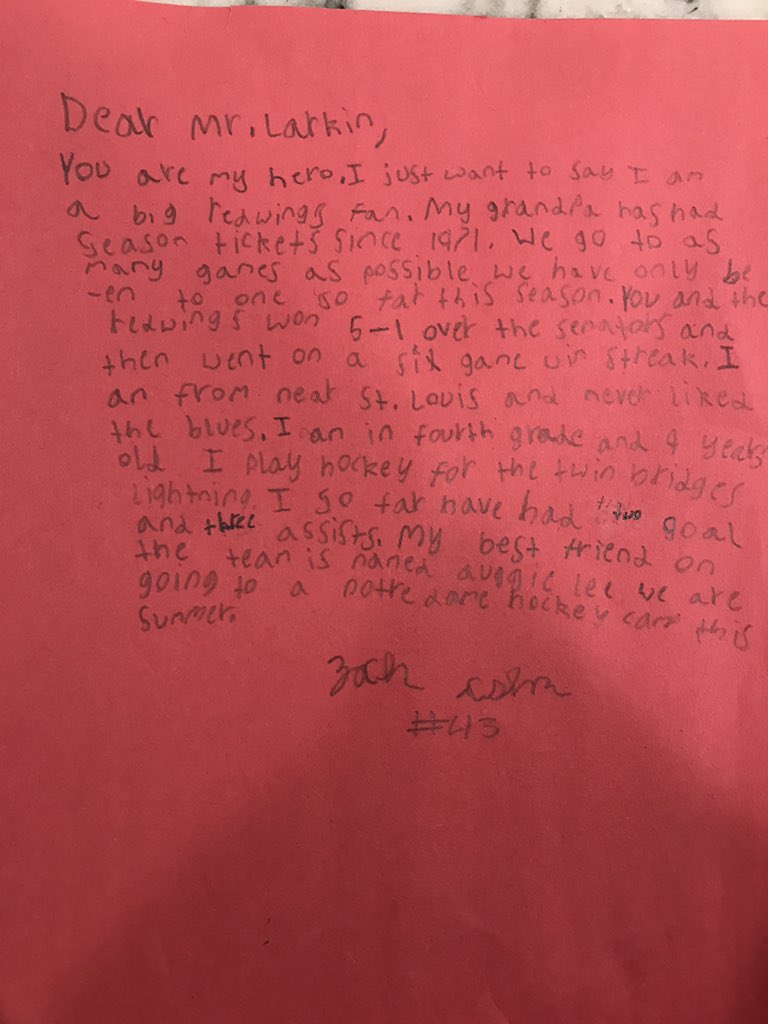 Dear Mr. Larkin,
You are my hero. I just want to say I am
a big redwings fan. My grandpa has had
Season tickets since 1971. We go to as
many games as possible we have only be
-en to one so far this season. You and the
redwings won 5-1 over the senators and
then went on a six game win streak. I
am from near St. Louis and never liked
the blues. I am in fourth grade and 9 years
old I play hockey for the twin bridges
lightning. I so far have had two goal
and three assists. My best friend on
the team is named auggie lee we are
going to a notre dame hockey camp this
Summer.
Zach
#43